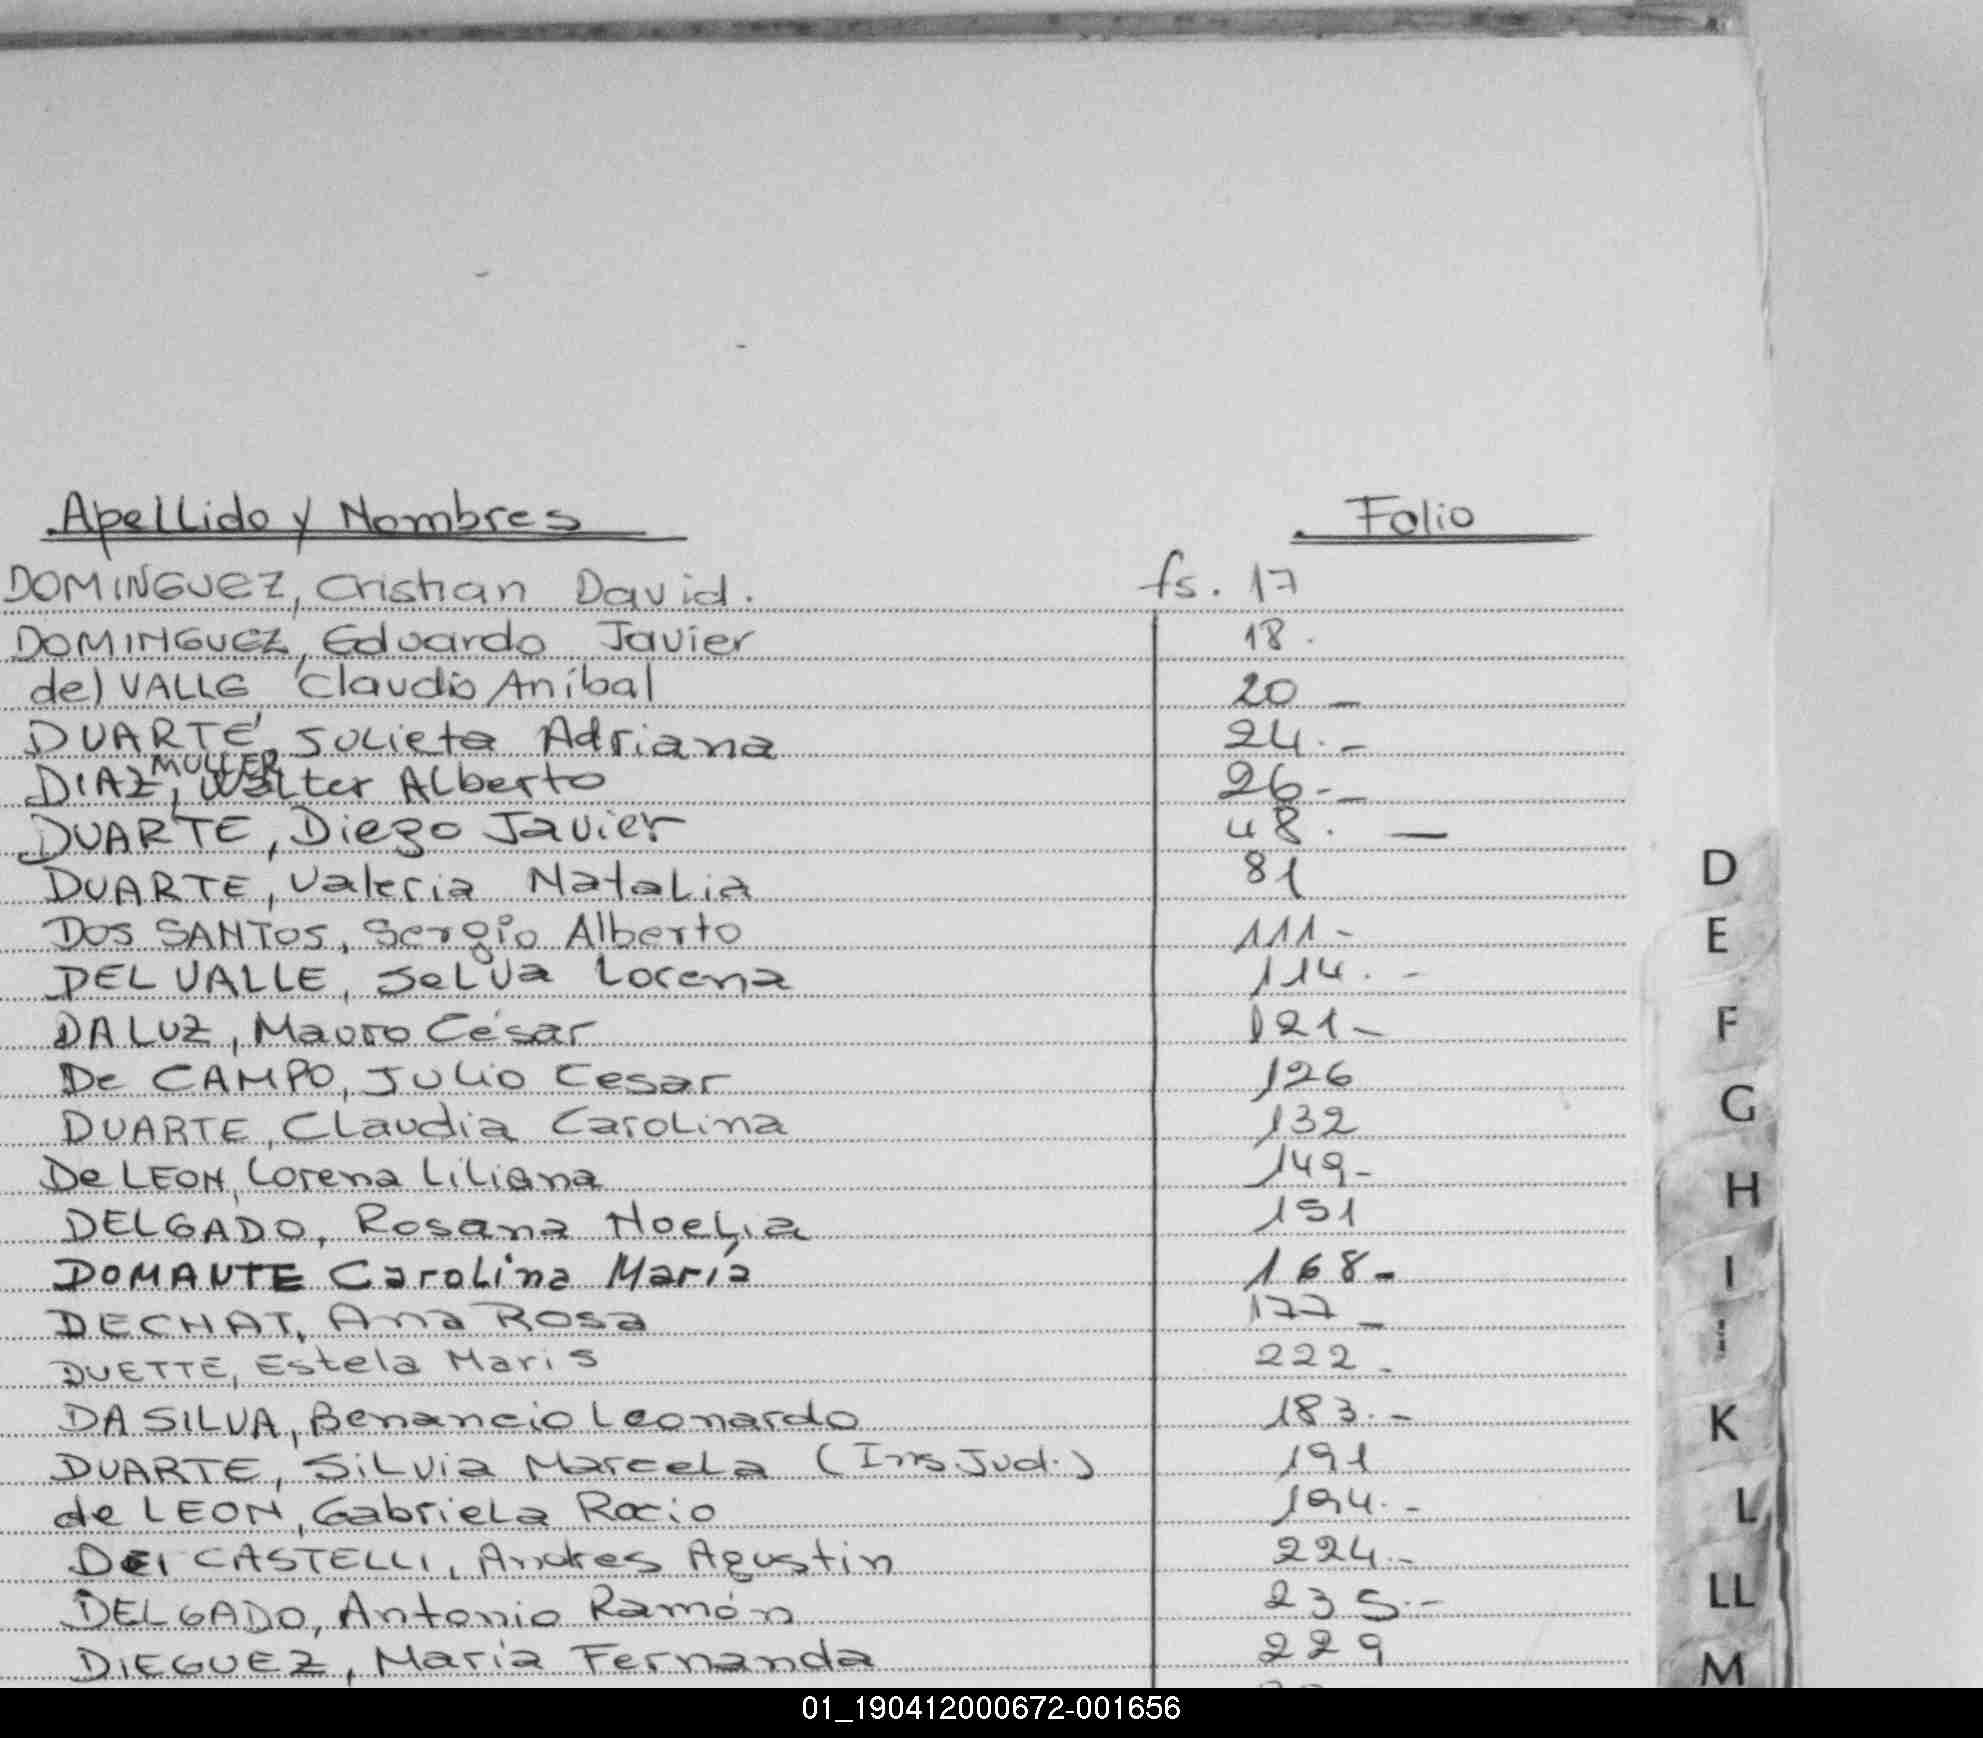 Apellido y Nombres Folio
DOMINGUEZ, Cristian David. fs. 17
DOMINGUEZ, Eduardo Javier 18.
del VALLE, Claudio Aníbal 20 -
DUARTE, Julieta Adriana 24.-
MULLER
DIAZ, Walter Alberto 26.-
DUARTE, Diego Javier 48. -
DUARTE, Valeria Natalia 81
DOS SANTOS, Sergio Alberto 111.-
DEL VALLE, Selva Lorena 114. -
DA LUZ, Mauro César 121-
De CAMPO, Julio Cesar 126
DUARTE, Claudia Carolina 132
De LEON, Lorena Liliana 149-
DELGADO, Rosana Noelia 151
DOMANTE Carolina María 168-
DECHAT, Ana Rosa 177 -
DUETTE, Estela Maris 222 -
DA SILVA, Benancio Leonardo 183.-
DUARTE, Silvia Marcela (Ins Jud.) 191
de LEON, Gabriela Rocio 194.-
DEI CASTELLI, Andres Agustin 224.-
DELGADO, Antonio Ramón 235.-
DIEGUEZ, María Fernanda 229
D
E
F
G
H
I
K
L
LL
M
01_190412000672-001656